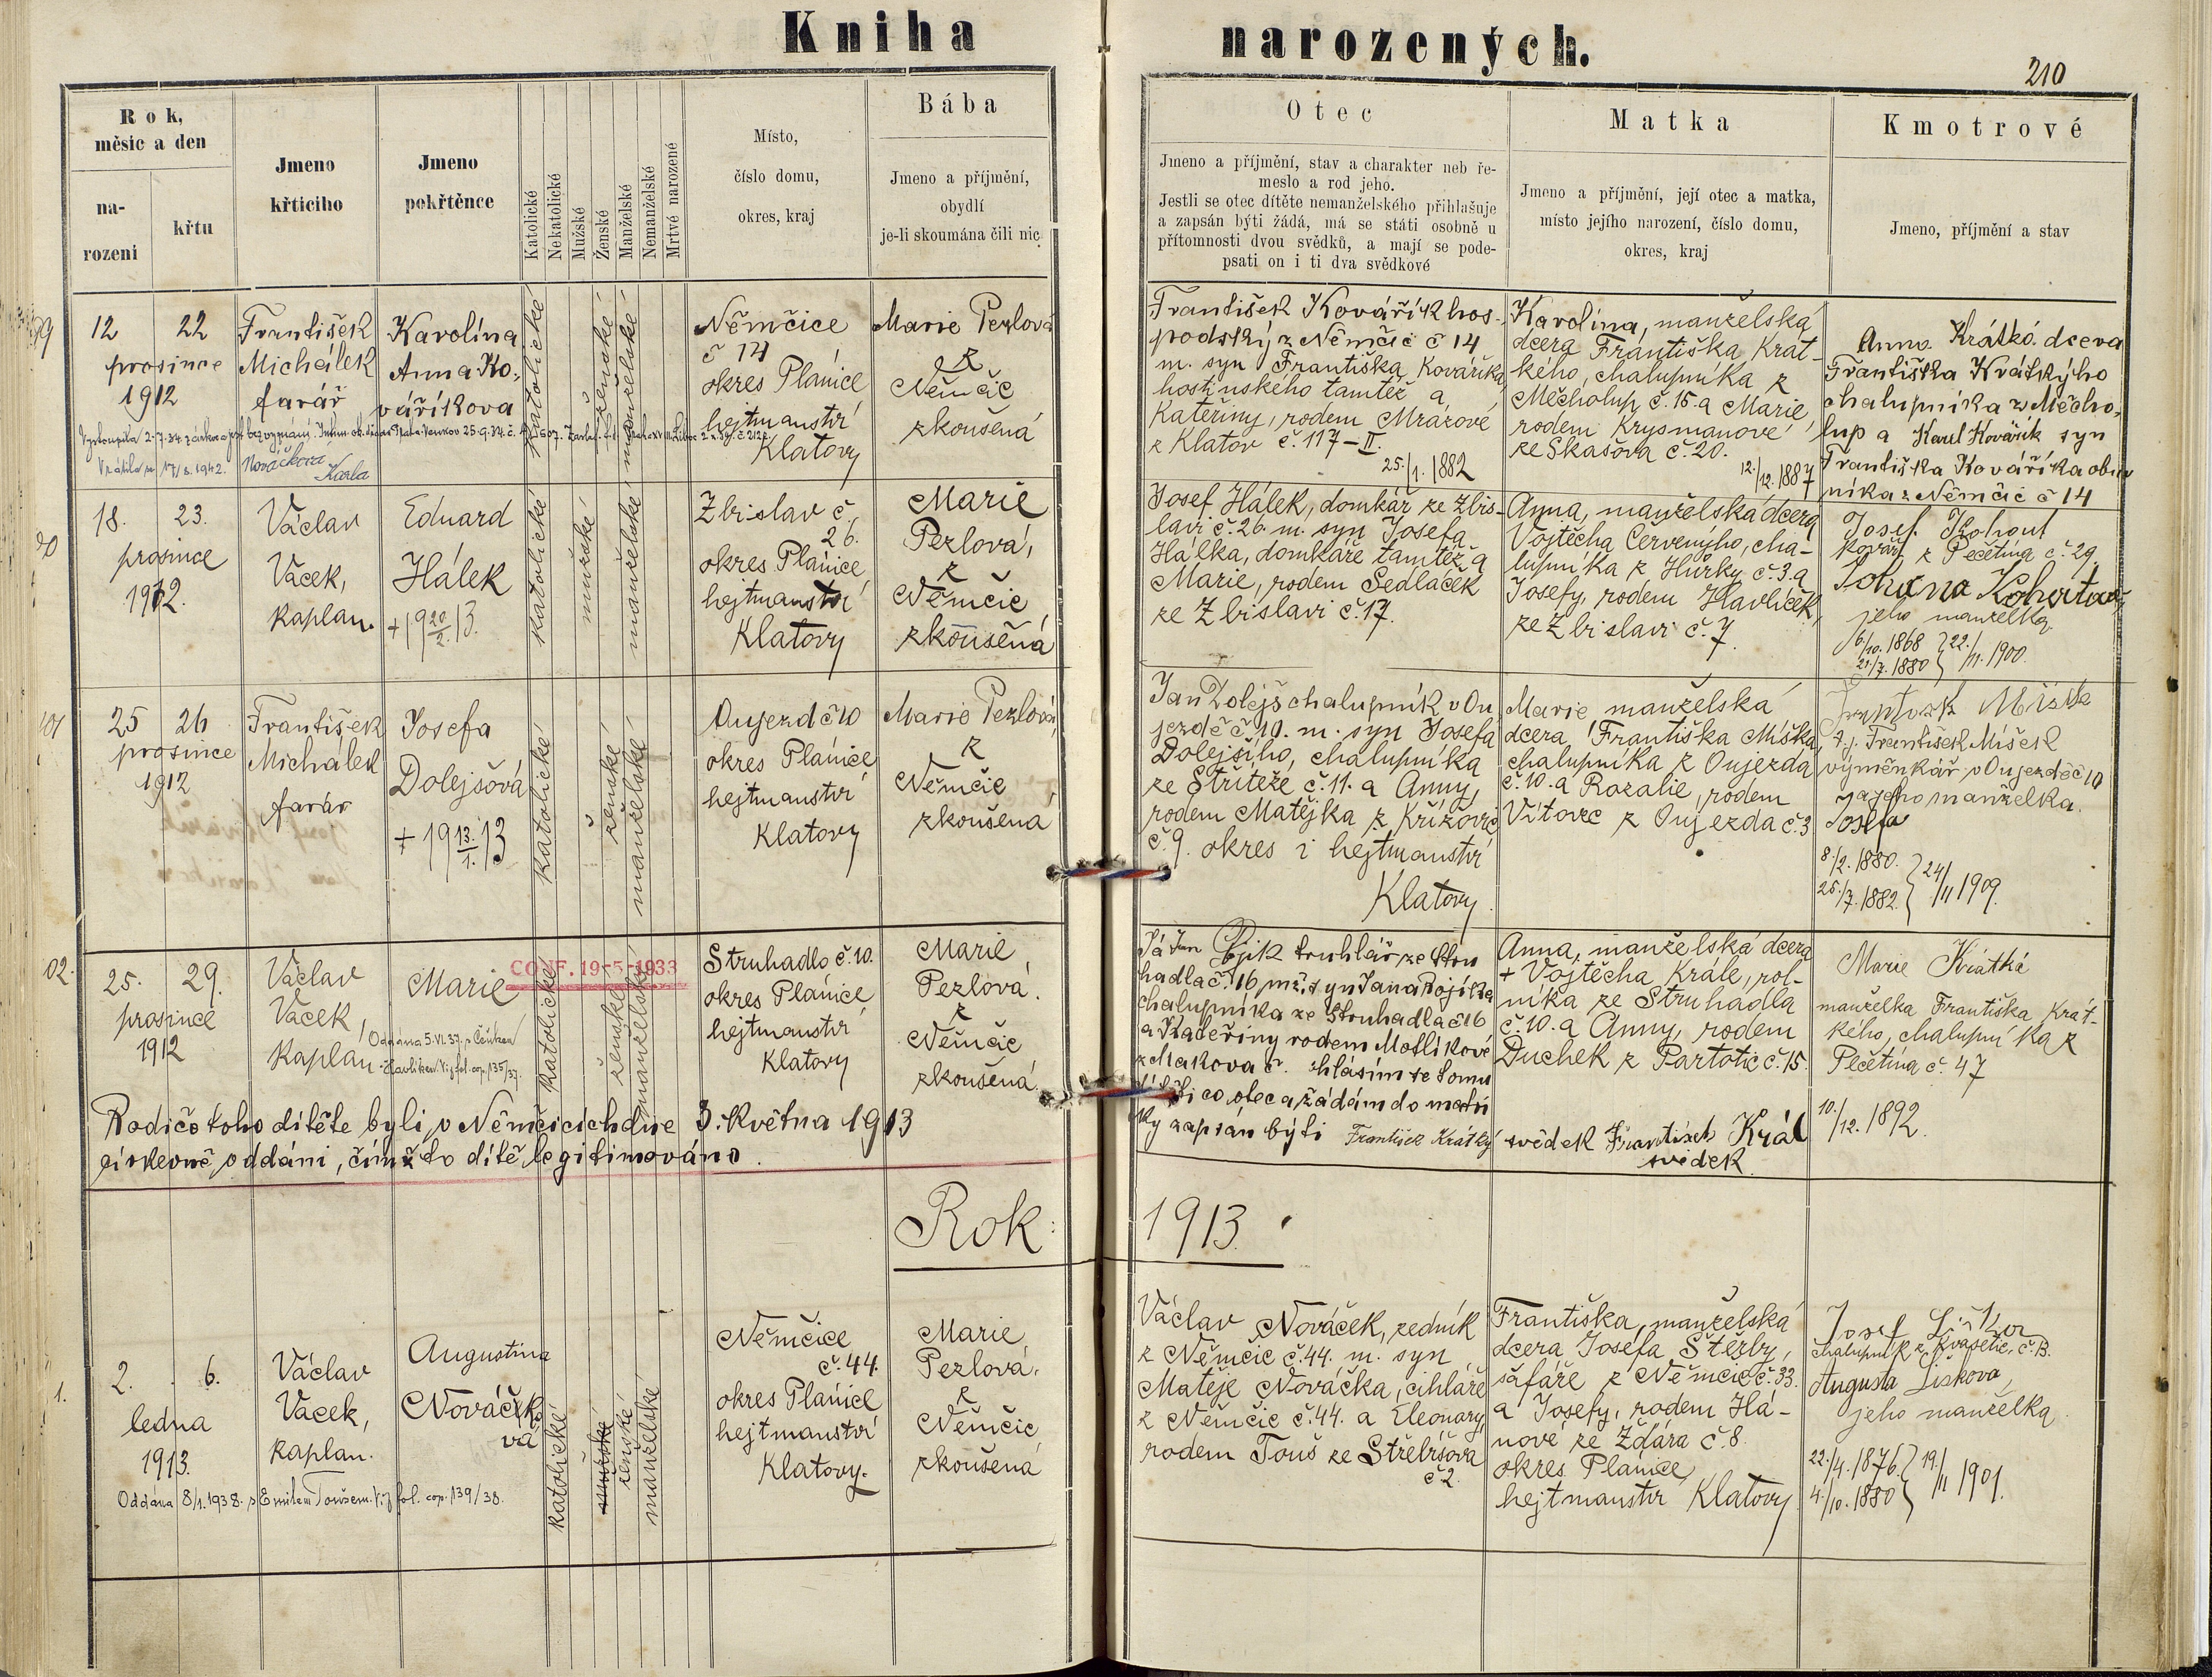 Kniha narozených.
210
Rok,
měsíc a den
na-
rozeni
křtu
Jmeno
křticího
Jmeno
pokřtěnce
Katolické
Nekatolické
Mužské
Ženské
Manželské
Nemanželské
Mrtvé narozené
Místo,
číslo domu,
okres, kraj
Bába
Jmeno a příjmění,
obydlí
je-li skoumána čili nic
Otec
Jmeno a příjmění, stav a charakter neb ře-
meslo a rod jeho.
Jestli se otec dítěte nemanželského přihlašuje
a zapsán býti žádá, má se státi osobně u
přítomnosti dvou svědků, a mají se pode-
psati on i ti dva svědkové
Matka
Jmeno a příjmění, její otec a matka,
místo jejího narození, číslo domu,
okres, kraj
Kmotrové
Jmeno, příjmění a stav
99
12 22
prosince
1912
František
Michálek
farář
Karolína
Anna Ko-
váříkova
katolické
ženské
manželské
Němčice
č 14
okres Plánice
hejtmanství
Klatovy
Marie Perlová
z
Němčic
zkoušená
František Kovářík hos-
podský z Němčic č 14
m. syn Františka Kováříka,
hostinského tamtéž a
Kateřiny, rodem Mrázové
z Klatov č. 117-II.
25./1. 1882
Karolina, manželská
dcera Františka Krát-
kého, chalupníka z
Měcholup č. 15. a Marie
rodem Krysmanové
ze Skašova č. 20.
12./12. 1887
Anna Krátká dcera
Františka Krátkýho
chalupníka z Měcho-
lup a Karel Kovářík syn
Františka Kováříka
níka z Němčic č 14
Vystoupila 2.7.34
Vrátila se 17/8. 1942.
Nováčkova
Karla
18. 23.
prosince
1912.
Václav
Vacek,
kaplan.
Eduard
Hálek
+19 20/2. 13.
katolické
mužské
manželské
Zbislav č.
26.
okres Plánice
hejtmanství
Klatovy
Marie
Perlová,
z
Němčic
zkoušená
Josef Hálek, domkář ze Zbis-
lavi č. 26. m. syn Josefa
Hálka, domkáře tamtéž a
Marie, rodem Sedláček
ze Zbislavi č. 17.
Anna, manželská dcera
Vojtěcha Červenýho, cha-
lupníka z Hůrky č. 3. a
Josefy, rodem Havlíček,
ze Zbislavi č. 7.
Josef Kohout
kovář z Pečetína č. 29.
jeho manželka
6./10. 1868 } 22./11. 1900.
21./7. 1880
101
25 26
prosince
1912
František
Michálek
farář
Josefa
Dolejšová
+ 19 13./1. 13
katolické
ženské
manželské
Oujezd č 10
okres Plánice
hejtmanství
Klatovy
Marie Perlová
z
Němčic
zkoušená
Jan Dolejš chalupník v Ou
jezdě č. 10. m. syn Josefa
Dolejšího, chalupníka
ze Střiteže č. 11. a Anny,
rodem Matějka z Křížovic
č. 9. okres i hejtmanství
Klatovy.
Marie manželská
dcera Františka Míška,
chalupníka z Oujezda
č. 10. a Rozalie, rodem
Vítovec z Oujezda č. 3
t. j. František Míšek
výměnkář v Oujezdě č 10
a jeho manželka.
Josefa
8./2. 1880. } 24/11 1909.
25./7. 1882.
02.
25. 29.
prosince
1912
Václav
Vacek,
Kaplan
Marie
CONF. 19-5-1933
Oddána 5.VI.37. s Čeňkem
Havlíkem. Viz fol. cop. 135/37.
katolické
ženské
manželské
Struhadlo č. 10.
okres Plánice
hejtmanství
Klatovy
Marie
Perlová.
z
Němčic
zkoušená.
Já Jan Bojik truhlář ze Stru
hadla č. 16, mž. syn Jana Bojíka
chalupníka ze Struhadla č 16
a Kateřiny rodem Motlíkové
z Makova č. hlásím se tomu
dítěti co otec a žádám do matri
ky zapsán býti František Krátký svědek František Král
svědek
Anna, manželská dcera
+ Vojtěcha Krále, rol-
níka ze Struhadla
č. 10. a Anny, rodem
Duchek z Partotic č. 15.
Marie Krátká
manželka Františka Krát-
kého, chalupníka z
Pečetína č. 47
10./12. 1892.
Rodičé toho dítěte byli v Němčicích dne 3. května 1913
církevně oddáni, čímž to dítě legitimováno.
Rok: 1913.
1.
2. 6.
ledna
1913.
Václav
Vacek,
kaplan.
Augustina
Nováčko
vá
katolické
mužské
ženské
manželské
Němčice
č. 44.
okres Plánice
hejtmanství
Klatovy.
Marie
Perlová.
z
Němčic
zkoušená
Václav Nováček, zedník
z Němčic č. 44. m. syn
Matěje Nováčka, cihláře
z Němčic č. 44. a Eleonory,
rodem Touš ze Střebišova
č 2.
Františka, manželská
dcera Josefa Stěžby,
šafáře z Němčic č. 33.
a Josefy, rodem Há-
nové ze Žďára č. 8.
okres Plánice,
hejtmanství Klatovy
Josef Liška
chalupník z Kvasetic, č. 13.
Augusta Lišková,
jeho manželka
22./4. 1876. } 19./11 1901.
4./10. 1880
Oddána 8/1. 1938. s Emilem Toušem. Viz fol. cop. 139/38.